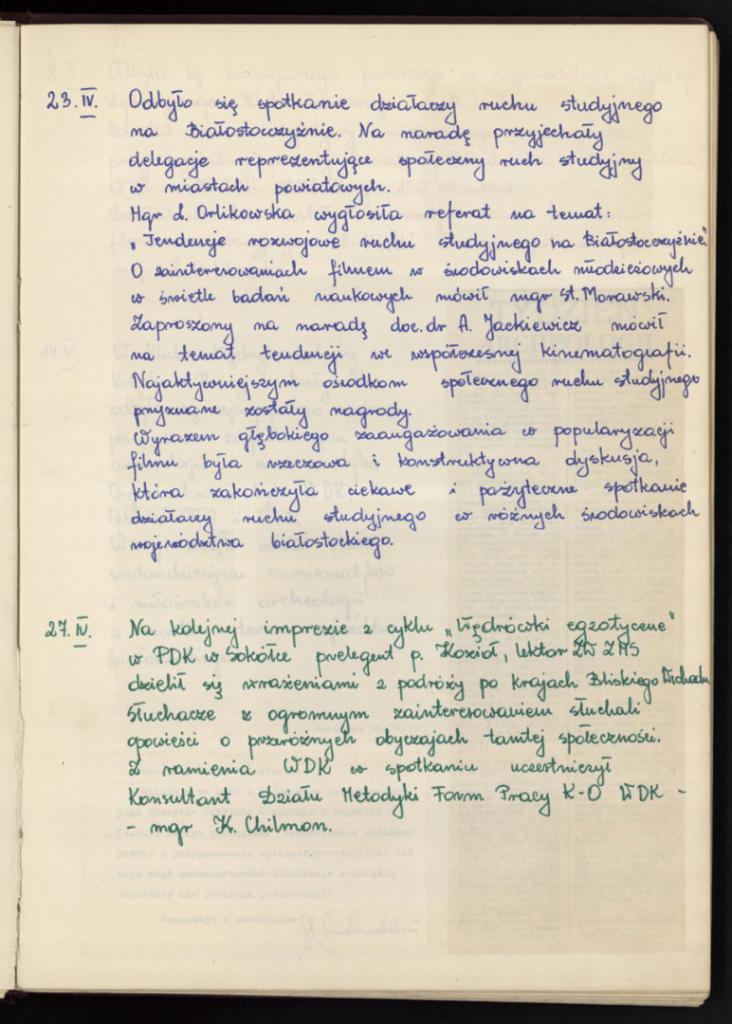 23.IV. Odbyło się spotkanie działaczy ruchu studyjnego
na Białostocczyźnie. Na naradę przyjechały
delegacje reprezentujące społeczny ruch studyjny
w miastach powiatowych.
Mgr L. Orlikowska wygłosiła referat na temat:
"Tendencje rozwojowe ruchu studyjnego na Białostocczyźnie."
O zainteresowaniach filmem w środowiskach młodzieżowych
w świetle badań naukowych mówił mgr St. Morawski.
Zaproszony na naradę doc. dr A. Jackiewicz mówił
na temat tendencji we współczesnej kinematografii.
Najaktywniejszym ośrodkom społecznego ruchu studyjnego
przyznane zostały nagrody.
Wyrazem głębokiego zaangażowania w popularyzacji
filmu była rzeczowa i konstruktywna dyskusja,
która zakończyła ciekawe i pożyteczne spotkanie
działaczy ruchu studyjnego w różnych środowiskach
województwa białostockiego.
27.IV. Na kolejnej imprezie z cyklu "Wędrówki egzotyczne"
w PDK w Sokółce prelegent p. Kozioł, lektor ZW ZMS
dzielił się wrażeniami z podróży po krajach Bliskiego Wschodu.
Słuchacze z ogromnym zainteresowaniem słuchali
opowieści o przeróżnych obyczajach tamtej społeczności.
Z ramienia WDK w spotkaniu uczestniczył
Konsultant Działu Metodyki Form Pracy K-O WDK -
- mgr K. Chilmon.